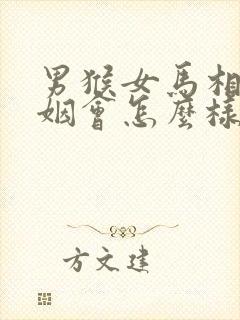 男猴女馬相
姻會怎麼樣
方文建